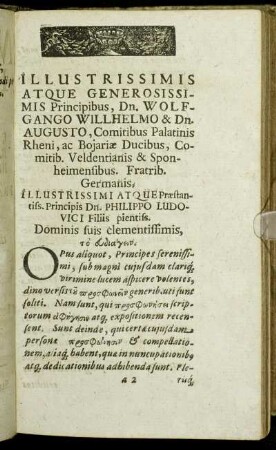 ILLUSTRISSIMIS
ATQUE GENEROSISSI-
MIS Principibus, Dn. WOLF-
GANGO WILLHELMO & Dn.
AUGUSTO, Comitibus Palatinis
Rheni, ac Bojariæ Ducibus, Co-
mitib. Veldentianis & Spon-
heimensibus. Fratrib.
Germanis,
ILLUSTRISSIMI ATQUE Præstan-
tiss. Principis Dn. PHILIPPO LUDO-
VICI Filiis pientiss.
Dominis suis clementissimis,
τὸ
OPus aliquot, Principes serenissi-
mi, sub magni cujusdam clariq́;
viri mine lucem aspicere volentes,
dino versitũ προσφωνεῖν generib. uti sunt
soliti. Nam sunt, qui προσφωνήση scrip-
torum ἀφήγησιν atq́; expositionem recen-
sent. Sunt deinde, qui certæ cujusdam
personæ & compellatio-
nem, habent, qua in nuncupationib.
atq́; dedicationibus adhibenda sunt. Ple-
a 2 riq́;